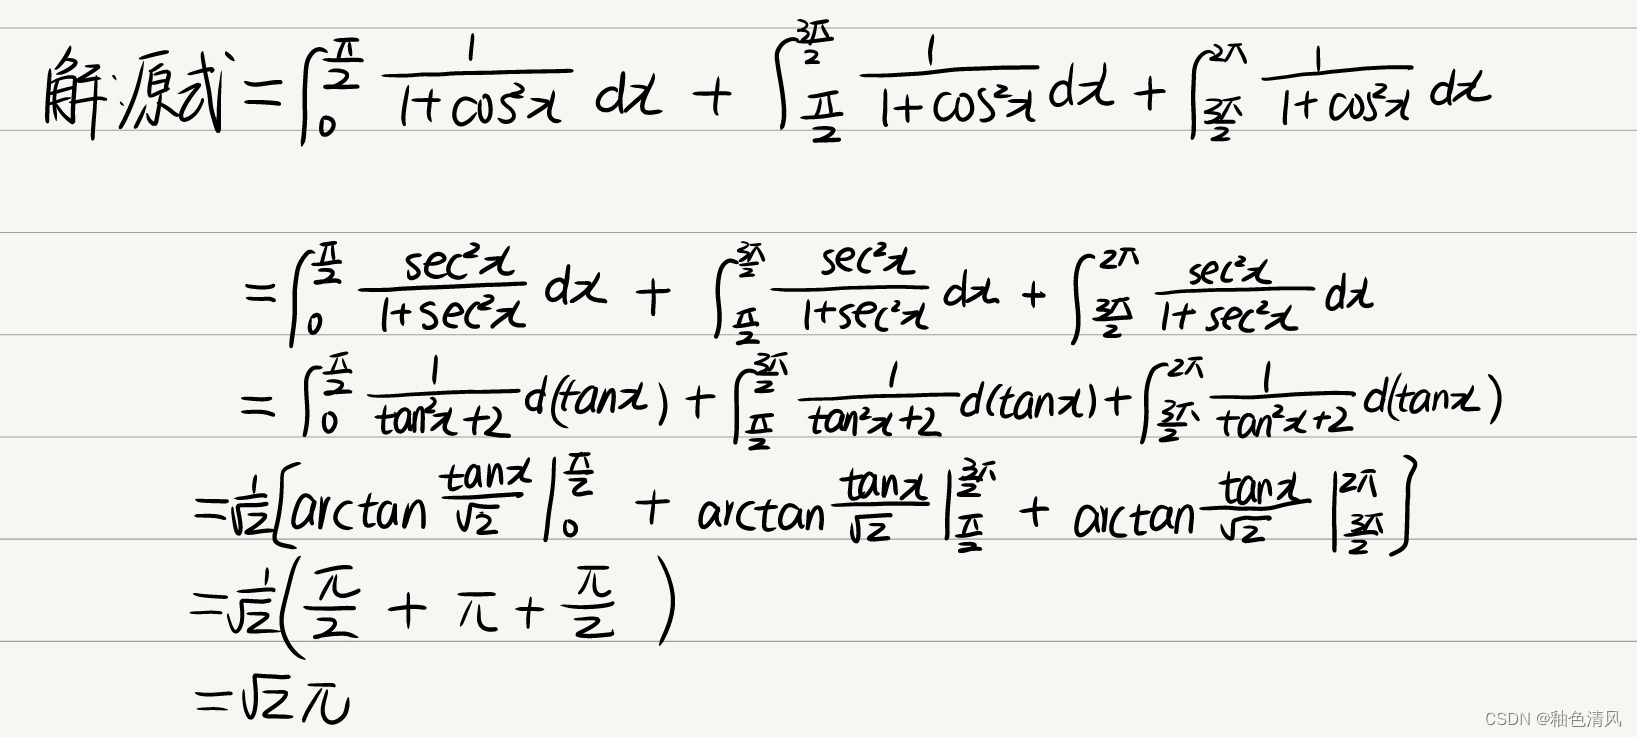 解:原式 = ∫_0^{π/2} 1/(1+cos²x) dx + ∫_{π/2}^{3π/2} 1/(1+cos²x) dx + ∫_{3π/2}^{2π} 1/(1+cos²x) dx
= ∫_0^{π/2} sec²x/(1+sec²x) dx + ∫_{π/2}^{3π/2} sec²x/(1+sec²x) dx + ∫_{3π/2}^{2π} sec²x/(1+sec²x) dx
= ∫_0^{π/2} 1/(tan²x+2) d(tanx) + ∫_{π/2}^{3π/2} 1/(tan²x+2) d(tanx) + ∫_{3π/2}^{2π} 1/(tan²x+2) d(tanx)
= 1/√2 [arctan tanx/√2 |_0^{π/2} + arctan tanx/√2 |_{π/2}^{3π/2} + arctan tanx/√2 |_{3π/2}^{2π}]
= 1/√2 (π/2 + π + π/2)
= √2 π
CSDN @釉色清风